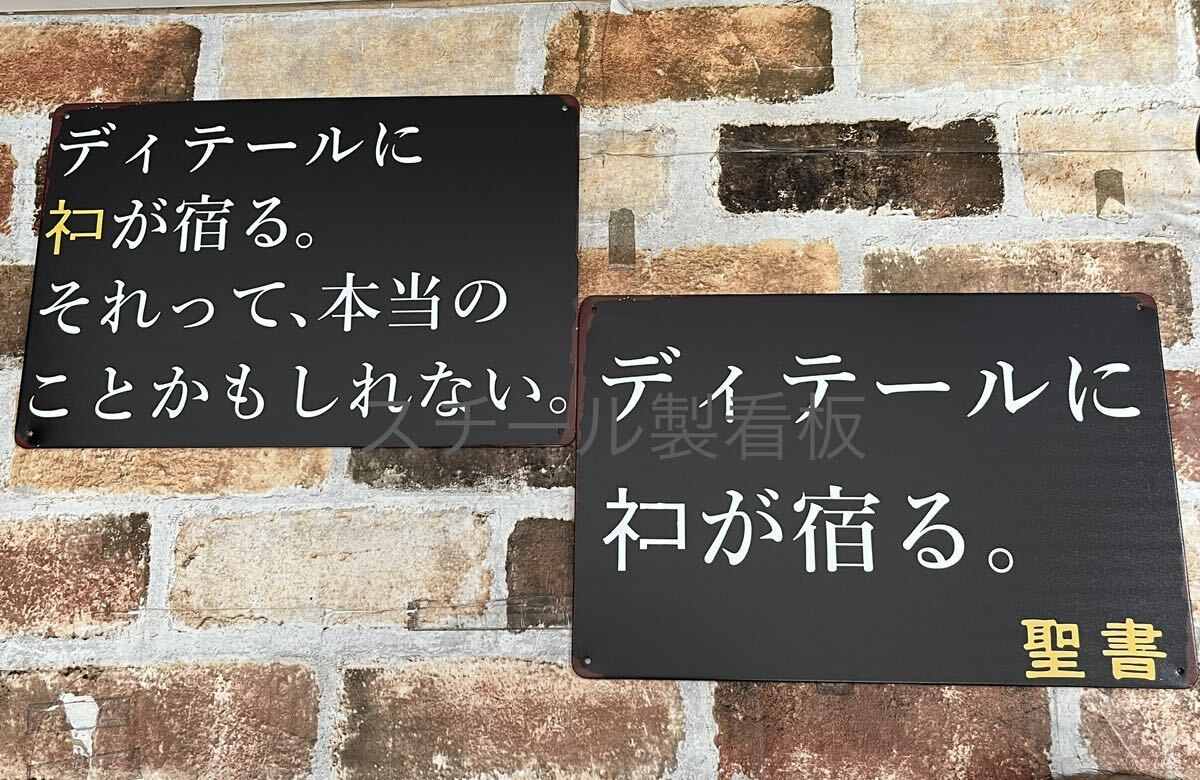 ディテールに
ネコが宿る。
それって、本当の
ことかもしれない。
スチール製看板
ディテールに
ネコが宿る。
聖書